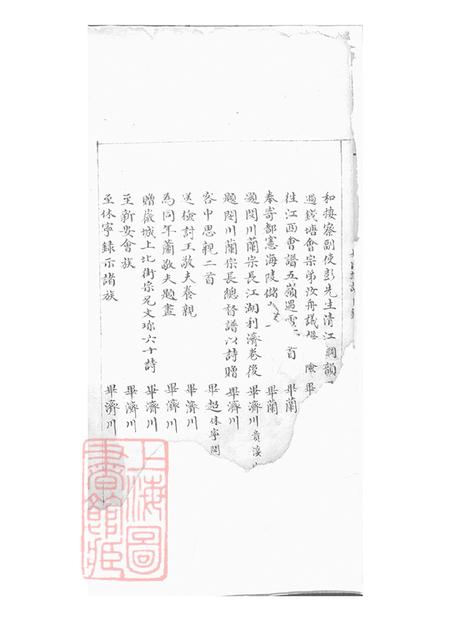 和按察副使彭先生清江調韻
過錢塘會宗弟汝舟議譜 畢
往江西會譜五嶺遇雪一首 畢蘭
奉寄都憲海陵儲 畢蘭
題閔川蘭宗長江湖利濟卷後 畢濟川 貴溪
題閔川蘭宗長總督譜以詩贈 畢濟川
客中思親二首 畢超 休寧閔
送檢討王敬夫養親 畢濟川
為同年蕭敬夫題畫 畢濟川
贈嚴城上北街宗兄文珍六十詩 畢濟川
至新安會族 畢濟川
至休寧錄示諸族 畢濟川
上海圖書館藏